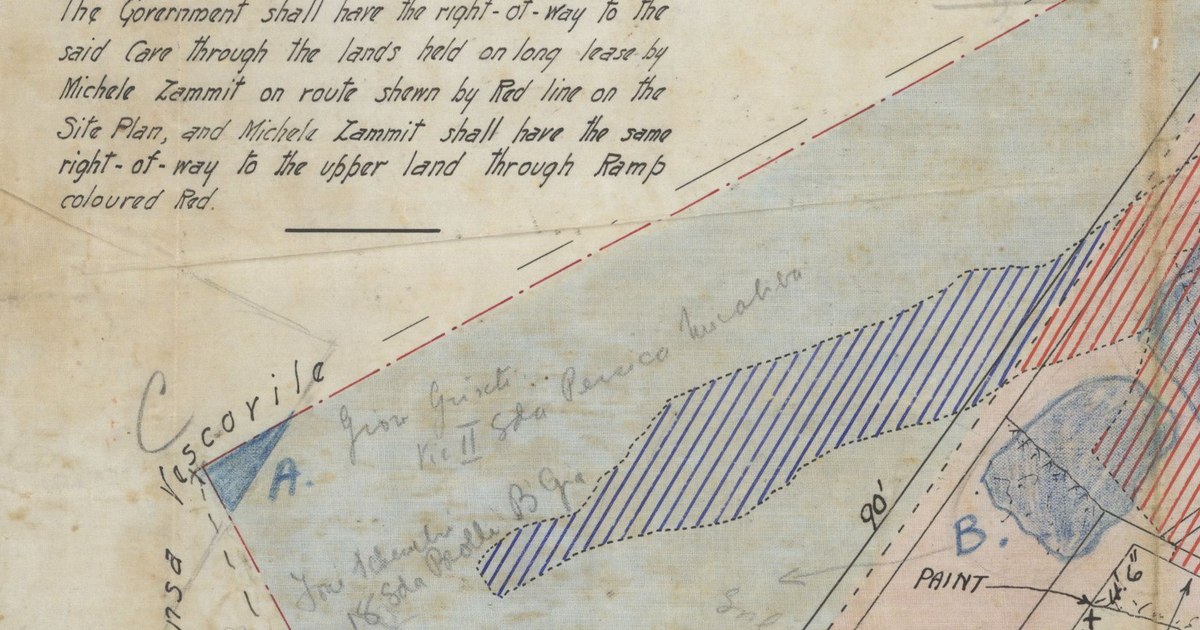 The Government shall have the right-of-way to the
said Cave through the lands held on long lease by
Michele Zammit on route shewn by Red line on the
Site Plan, and Michele Zammit shall have the same
right-of-way to the upper land through Ramp
coloured Red.
C
Vescovile
A.
II Sda
18 Sda
90'
B.
PAINT